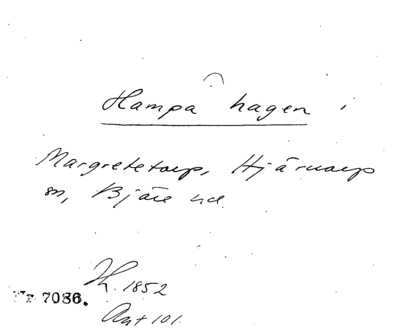 Hampa hagen i
Margretetorp, Hjärnarp
sn, Bjäre hd.
H. 1852
Nr 7086.
Ant 101.